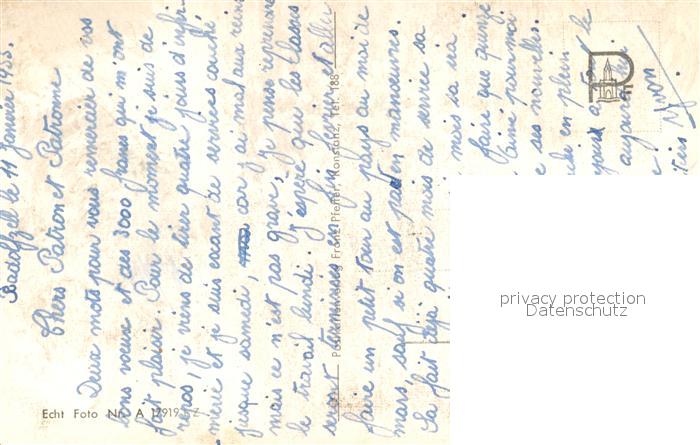 Radolfzell le 11 Janvier 1955.
Chers Patron et Patronne
Deux mots pour vous remercier de vos
bons vœux et des 3000 francs qui m'ont
fait plaisir. Pour le moment je suis de
repos, je viens de tirer quatre jours d'infir
merie et je suis exant de services couché
jusque samedi, car j'ai mal aux reins
mais ce n'est pas grave, je pense reprendre
le travail lundi. J'espère que les classes
seront terminées en fin et aller
faire un petit tour au pays au moi de
mars, sauf si on est parti en manœuvres.
Sa fait déjà quatre mois de service sa
mais sa va.
faire que quinze
pour moi
ses nouvelles.
en plein
le
Yvon
Postkartenverlag Franz Pfeffer, Konstanz, Tel. 188
Echt Foto Nr. A 17919 Z
privacy protection
Datenschutz